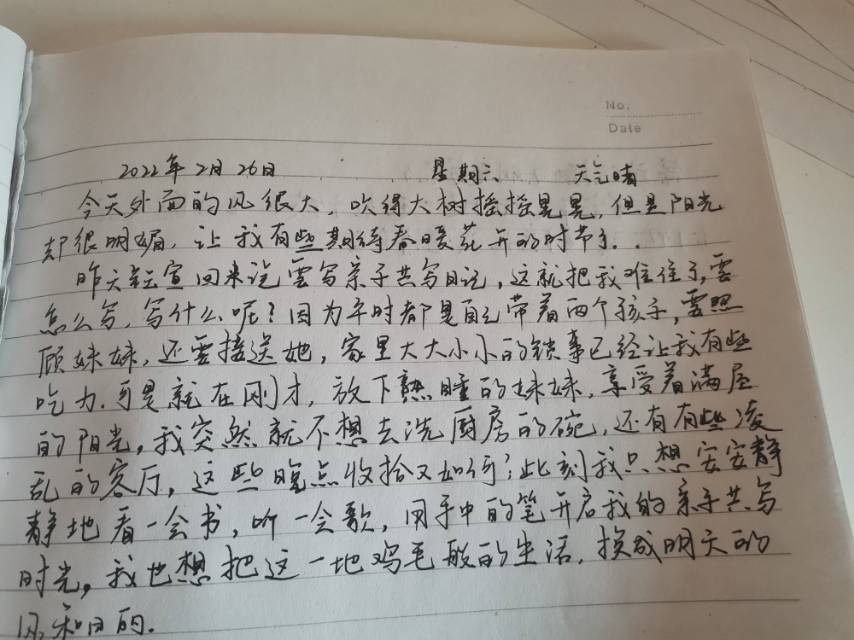 No.
Date
2022年2月26日 星期六 天气晴
今天外面的风很大,吹得大树摇摇晃晃,但是阳光
却很明媚,让我有些期待春暖花开的时节了..
昨天宣回来说要写亲子共写日记,这就把我难住了,要
怎么写,写什么呢?因为平时都是自己带着两个孩子,要照
顾妹妹,还要接送她,家里大大小小的锁事已经让我有些
吃力.可是就在刚才,放下熟睡的妹妹,享受着满屋
的阳光,我突然就不想去洗厨房的碗,还有有些凌
乱的客厅,这些晚点收拾又如何;此刻我只想安安静
静地看一会书,听一会歌,用手中的笔开启我的亲子共写
时光,我也想把这一地鸡毛般的生活,换成明天的
风和日丽.